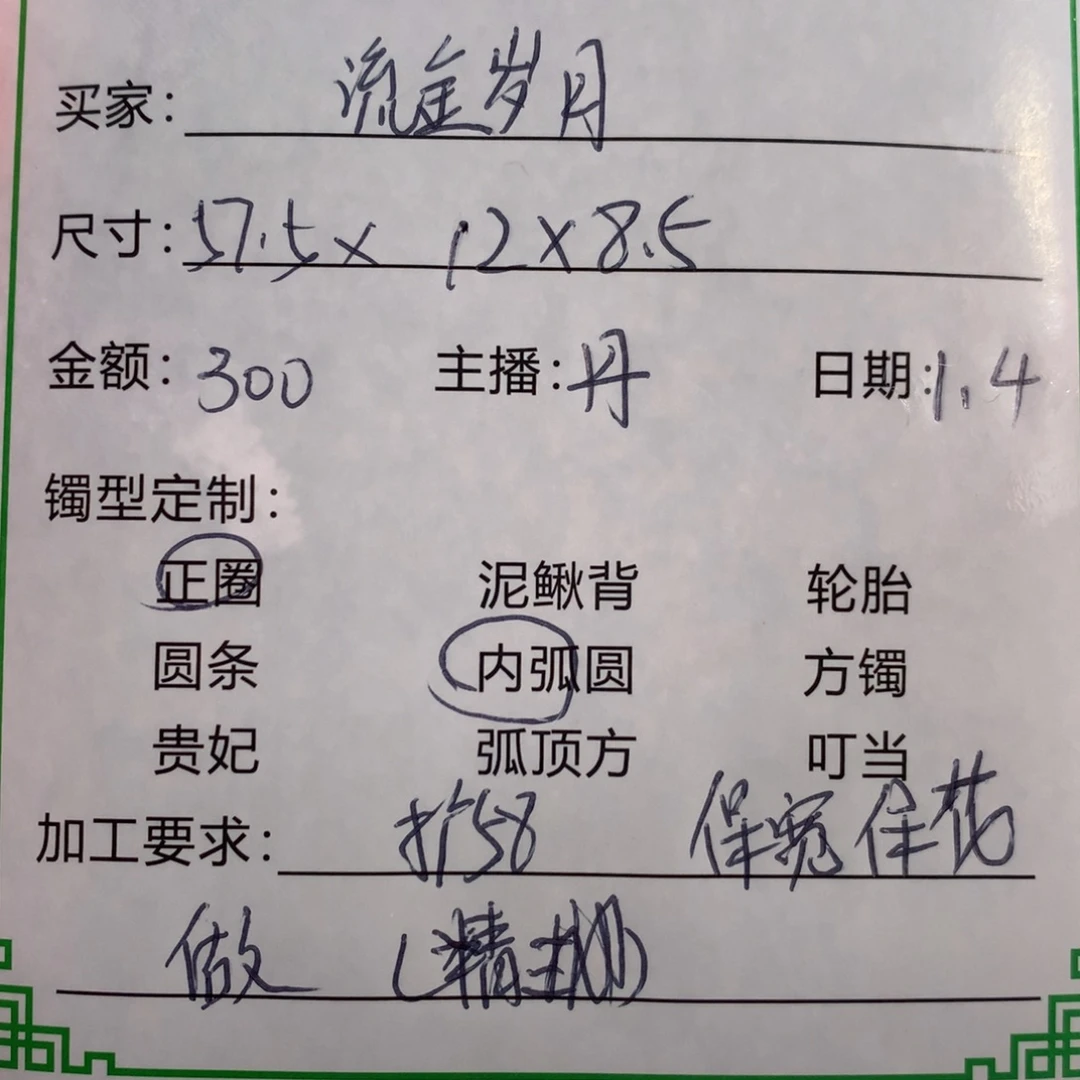 买家：流金岁月
尺寸：57.5× 12×8.5
金额：300 主播：丹 日期：1.4
镯型定制：
正圈 泥鳅背 轮胎
圆条 内弧圆 方镯
贵妃 弧顶方 叮当
加工要求：扩58 保宽保花
做（精